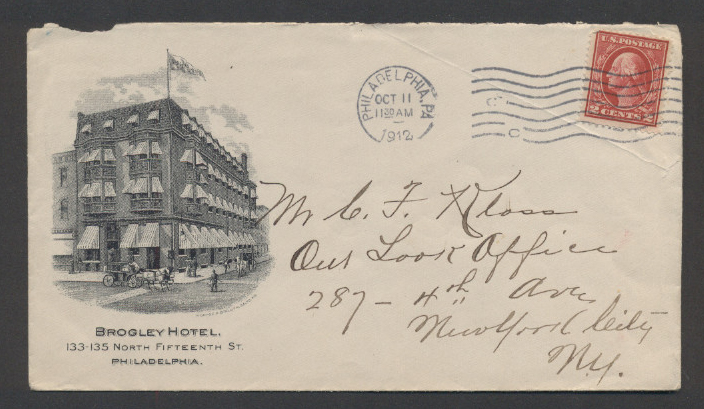 PHILADELPHIA, PA
OCT 11
11 30 AM
1912
U.S. POSTAGE
2 CENTS 2
Mr C. F. Kloss
Out Look Office
287 - 4th Ave
New York City
N.Y.
BROGLEY HOTEL.
133-135 NORTH FIFTEENTH ST.
PHILADELPHIA.